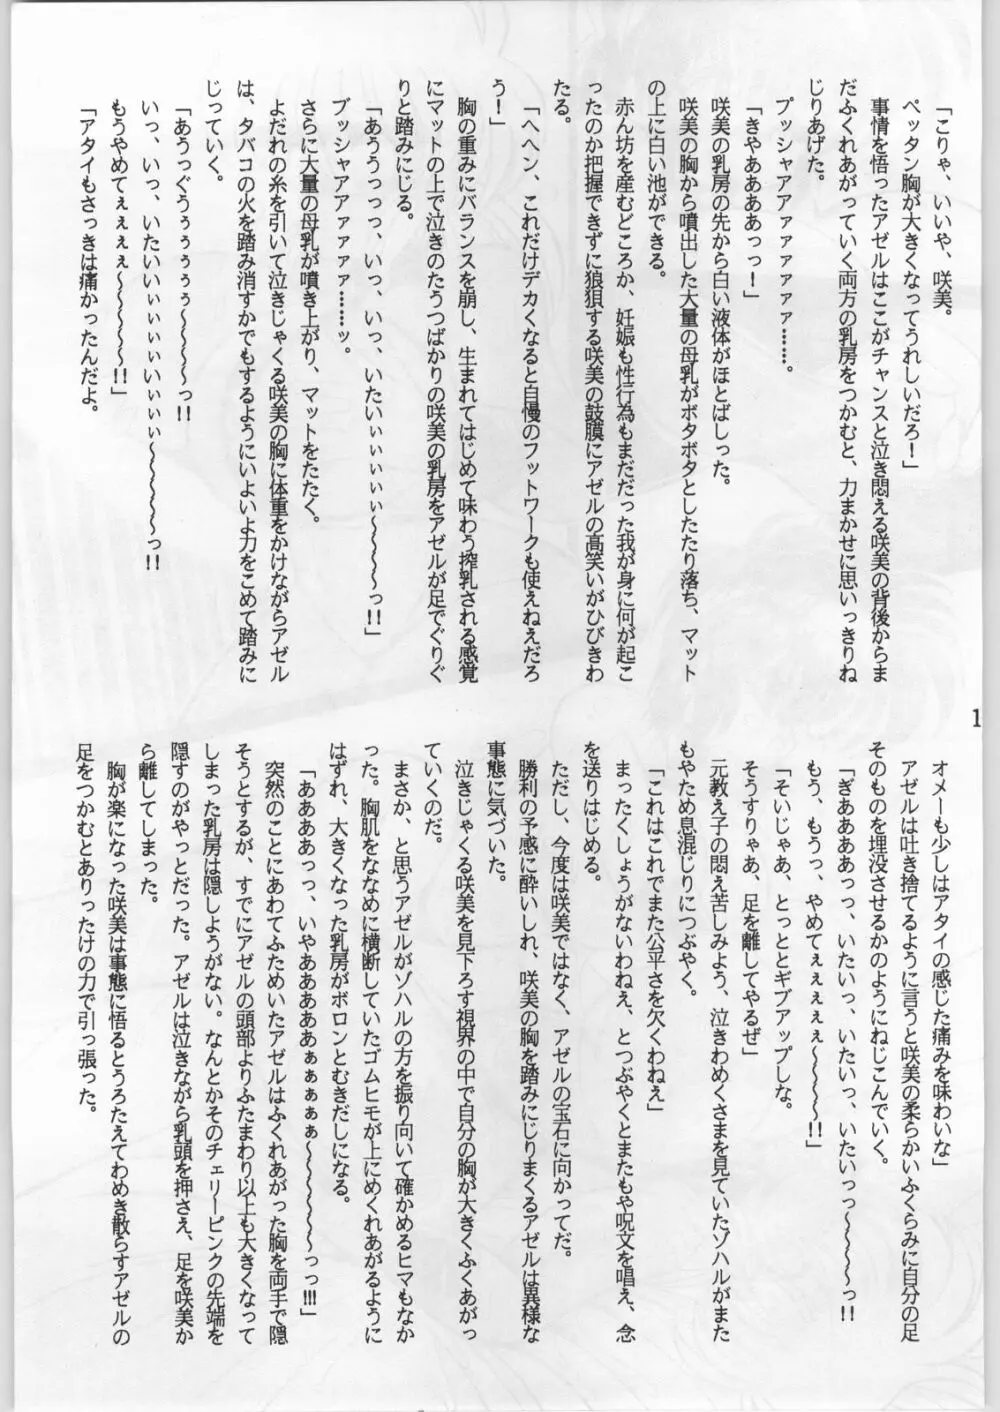 「こりゃ、いいや、咲美。
ペッタン胸が大きくなってうれしいだろ！」
事情を悟ったアゼルはここがチャンスと泣き悶える咲美の背後からま
だふくれあがっていく両方の乳房をつかむと、力まかせに思いっきりね
じりあげた。
プッシャアアアァァァァァ……。
「きゃああああっっ！」
咲美の乳房の先から白い液体がほとばしった。
咲美の胸から噴出した大量の母乳がボタボタとしたたり落ち、マット
の上に白い池ができる。
赤ん坊を産むどころか、妊娠も性行為もまだだった我が身に何が起こ
ったのか把握できずに狼狽する咲美の鼓膜にアゼルの高笑いがひびきわ
たる。
「へヘン、これだけデカくなると自慢のフットワークも使えねえだろ
う！」
胸の重みにバランスを崩し、生まれてはじめて味わう搾乳される感覚
にマットの上で泣きのたうつばかりの咲美の乳房をアゼルが足でぐりぐ
りと踏みにじる。
「あううっっっ、いっ、いっ、いたいぃぃぃぃぃ～～～～～っ!!」
ブッシャアアァァァァ……ッ。
さらに大量の母乳が噴き上がり、マットをたたく。
よだれの糸を引いて泣きじゃくる咲美の胸に体重をかけながらアゼル
は、タバコの火を踏み消すかでもするようにいよいよ力をこめて踏みに
じっていく。
「あうっぐうぅぅぅぅぅ～～～～～っ!!
いっ、いっ、いたいいぃぃぃぃいぃぃぃ～～～～～っ!!
もうやめてぇぇぇぇ～～～～～!!」
「アタイもさっきは痛かったんだよ。
1
オメーも少しはアタイの感じた痛みを味わいな」
アゼルは吐き捨てるように言うと咲美の柔らかいふくらみに自分の足
そのものを埋没させるかのようにねじこんでいく。
「ぎああああっっ、いたいっ、いたいっ、いたいっっ～～～～～っ!!
もう、もうっ、やめてぇぇぇぇぇ～～～～～!!」
「そいじゃあ、とっととギブアップしな。
そうすりゃあ、足を離してやるぜ」
元教え子の悶え苦しみよう、泣きわめくさまを見ていたゾハルがまた
もやため息混じりにつぶやく。
「これはこれでまた公平さを欠くわねぇ」
まったくしょうがないわねえ、とつぶやくとまたもや呪文を唱え、念
を送りはじめる。
ただし、今度は咲美ではなく、アゼルの宝石に向かってだ。
勝利の予感に酔いしれ、咲美の胸を踏みにじりまくるアゼルは異様な
事態に気づいた。
泣きじゃくる咲美を見下ろす視界の中で自分の胸が大きくふくあがっ
ていくのだ。
まさか、と思うアゼルがゾハルの方を振り向いて確かめるヒマもなか
った。胸肌をななめに横断していたゴムヒモが上にめくれあがるように
はずれ、大きくなった乳房がボロンとむきだしになる。
「ああああっっ、いやああああああぁぁぁぁぁ～～～～～っっ!!!」
突然のことにあわてふためいたアゼルはふくれあがった胸を両手で隠
そうとするが、すでにアゼルの頭部よりふたまわり以上も大きくなって
しまった乳房は隠しようがない。なんとかそのチェリーピンクの先端を
隠すのがやっとだった。アゼルは泣きながら乳頭を押さえ、足を咲美か
ら離してしまった。
胸が楽になった咲美は事態に悟るとうろたえてわめき散らすアゼルの
足をつかむとありったけの力で引っ張った。